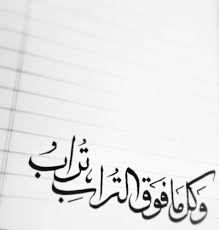 وَكل مَا فَوَق التُرابِ تُرابُ